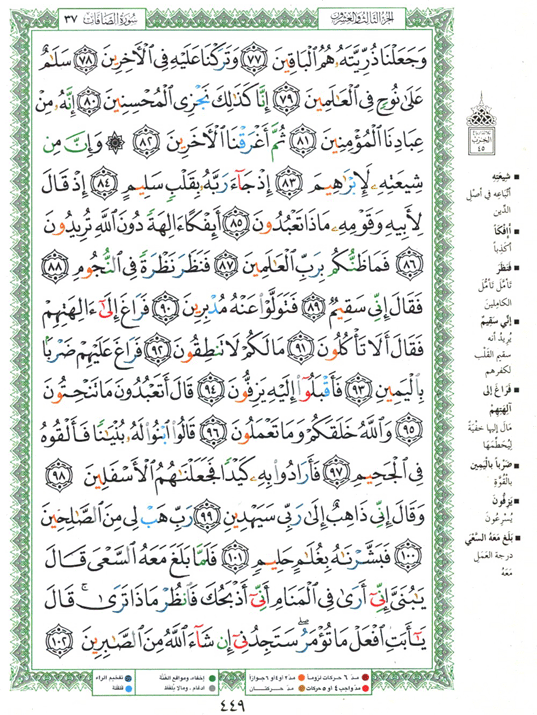 الجزء الثالث والعشرون
سورة الصافات ٣٧
وَجَعَلْنَا ذُرِّيَّتَهُۥ هُمُ الْبَاقِينَ ﴿٧٧﴾ وَتَرَكْنَا عَلَيْهِ فِى الْأَخِرِينَ ﴿٧٨﴾ سَلَٰمٌ
عَلَىٰ نُوحٍ فِى الْعَٰلَمِينَ ﴿٧٩﴾ إِنَّا كَذَٰلِكَ نَجْزِى الْمُحْسِنِينَ ﴿٨٠﴾ إِنَّهُۥ مِنْ
عِبَادِنَا الْمُؤْمِنِينَ ﴿٨١﴾ ثُمَّ أَغْرَقْنَا الْأَخَرِينَ ﴿٨٢﴾ ۞ وَإِنَّ مِن
شِيعَتِهِۦ لَإِبْرَٰهِيمَ ﴿٨٣﴾ إِذْ جَآءَ رَبَّهُۥ بِقَلْبٍ سَلِيمٍ ﴿٨٤﴾ إِذْ قَالَ
لِأَبِيهِ وَقَوْمِهِۦ مَاذَا تَعْبُدُونَ ﴿٨٥﴾ أَئِفْكًا ءَالِهَةً دُونَ اللَّهِ تُرِيدُونَ
﴿٨٦﴾ فَمَا ظَنُّكُم بِرَبِّ الْعَٰلَمِينَ ﴿٨٧﴾ فَنَظَرَ نَظْرَةً فِى النُّجُومِ ﴿٨٨﴾
فَقَالَ إِنِّى سَقِيمٌ ﴿٨٩﴾ فَتَوَلَّوْا۟ عَنْهُ مُدْبِرِينَ ﴿٩٠﴾ فَرَاغَ إِلَىٰٓ ءَالِهَتِهِمْ
فَقَالَ أَلَا تَأْكُلُونَ ﴿٩١﴾ مَا لَكُمْ لَا تَنطِقُونَ ﴿٩٢﴾ فَرَاغَ عَلَيْهِمْ ضَرْبًۢا
بِالْيَمِينِ ﴿٩٣﴾ فَأَقْبَلُوٓا۟ إِلَيْهِ يَزِفُّونَ ﴿٩٤﴾ قَالَ أَتَعْبُدُونَ مَا تَنْحِتُونَ
﴿٩٥﴾ وَاللَّهُ خَلَقَكُمْ وَمَا تَعْمَلُونَ ﴿٩٦﴾ قَالُوا۟ ابْنُوا۟ لَهُۥ بُنْيَٰنًا فَأَلْقُوهُ
فِى الْجَحِيمِ ﴿٩٧﴾ فَأَرَادُوا۟ بِهِۦ كَيْدًا فَجَعَلْنَٰهُمُ الْأَسْفَلِينَ ﴿٩٨﴾
وَقَالَ إِنِّى ذَاهِبٌ إِلَىٰ رَبِّى سَيَهْدِينِ ﴿٩٩﴾ رَبِّ هَبْ لِى مِنَ الصَّٰلِحِينَ
﴿١٠٠﴾ فَبَشَّرْنَٰهُ بِغُلَٰمٍ حَلِيمٍ ﴿١٠١﴾ فَلَمَّا بَلَغَ مَعَهُ السَّعْىَ قَالَ
يَٰبُنَىَّ إِنِّىٓ أَرَىٰ فِى الْمَنَامِ أَنِّىٓ أَذْبَحُكَ فَانظُرْ مَاذَا تَرَىٰ ۚ قَالَ
يَٰٓأَبَتِ افْعَلْ مَا تُؤْمَرُ ۖ سَتَجِدُنِىٓ إِن شَآءَ اللَّهُ مِنَ الصَّٰبِرِينَ ﴿١٠٢﴾
الحزب
٤٥
■ شيعته
أتباعه في أصل
الدين
■ أئفكاً
أكذباً
■ فنظر
تأمل تأمل
الكاملين
■ إني سقيم
يريد أنه
سقيم القلب
لكفرهم
■ فراغ إلى
آلهتهم
مال إليها خفية
ليحطمها
■ ضرباً باليمين
بالقوة
■ يزفون
يسرعون
■ بلغ معه السعي
درجة العمل
معه
مد ٦ حركات لزوماً
مد ٢ أو ٤ أو ٦ جوازاً
إخفاء، ومواقع الغنة
تفخيم الراء
مد واجب ٤ أو ٥ حركات
مد حركتان
ادغام، وما لا يلفظ
قلقلة
٤٤٩